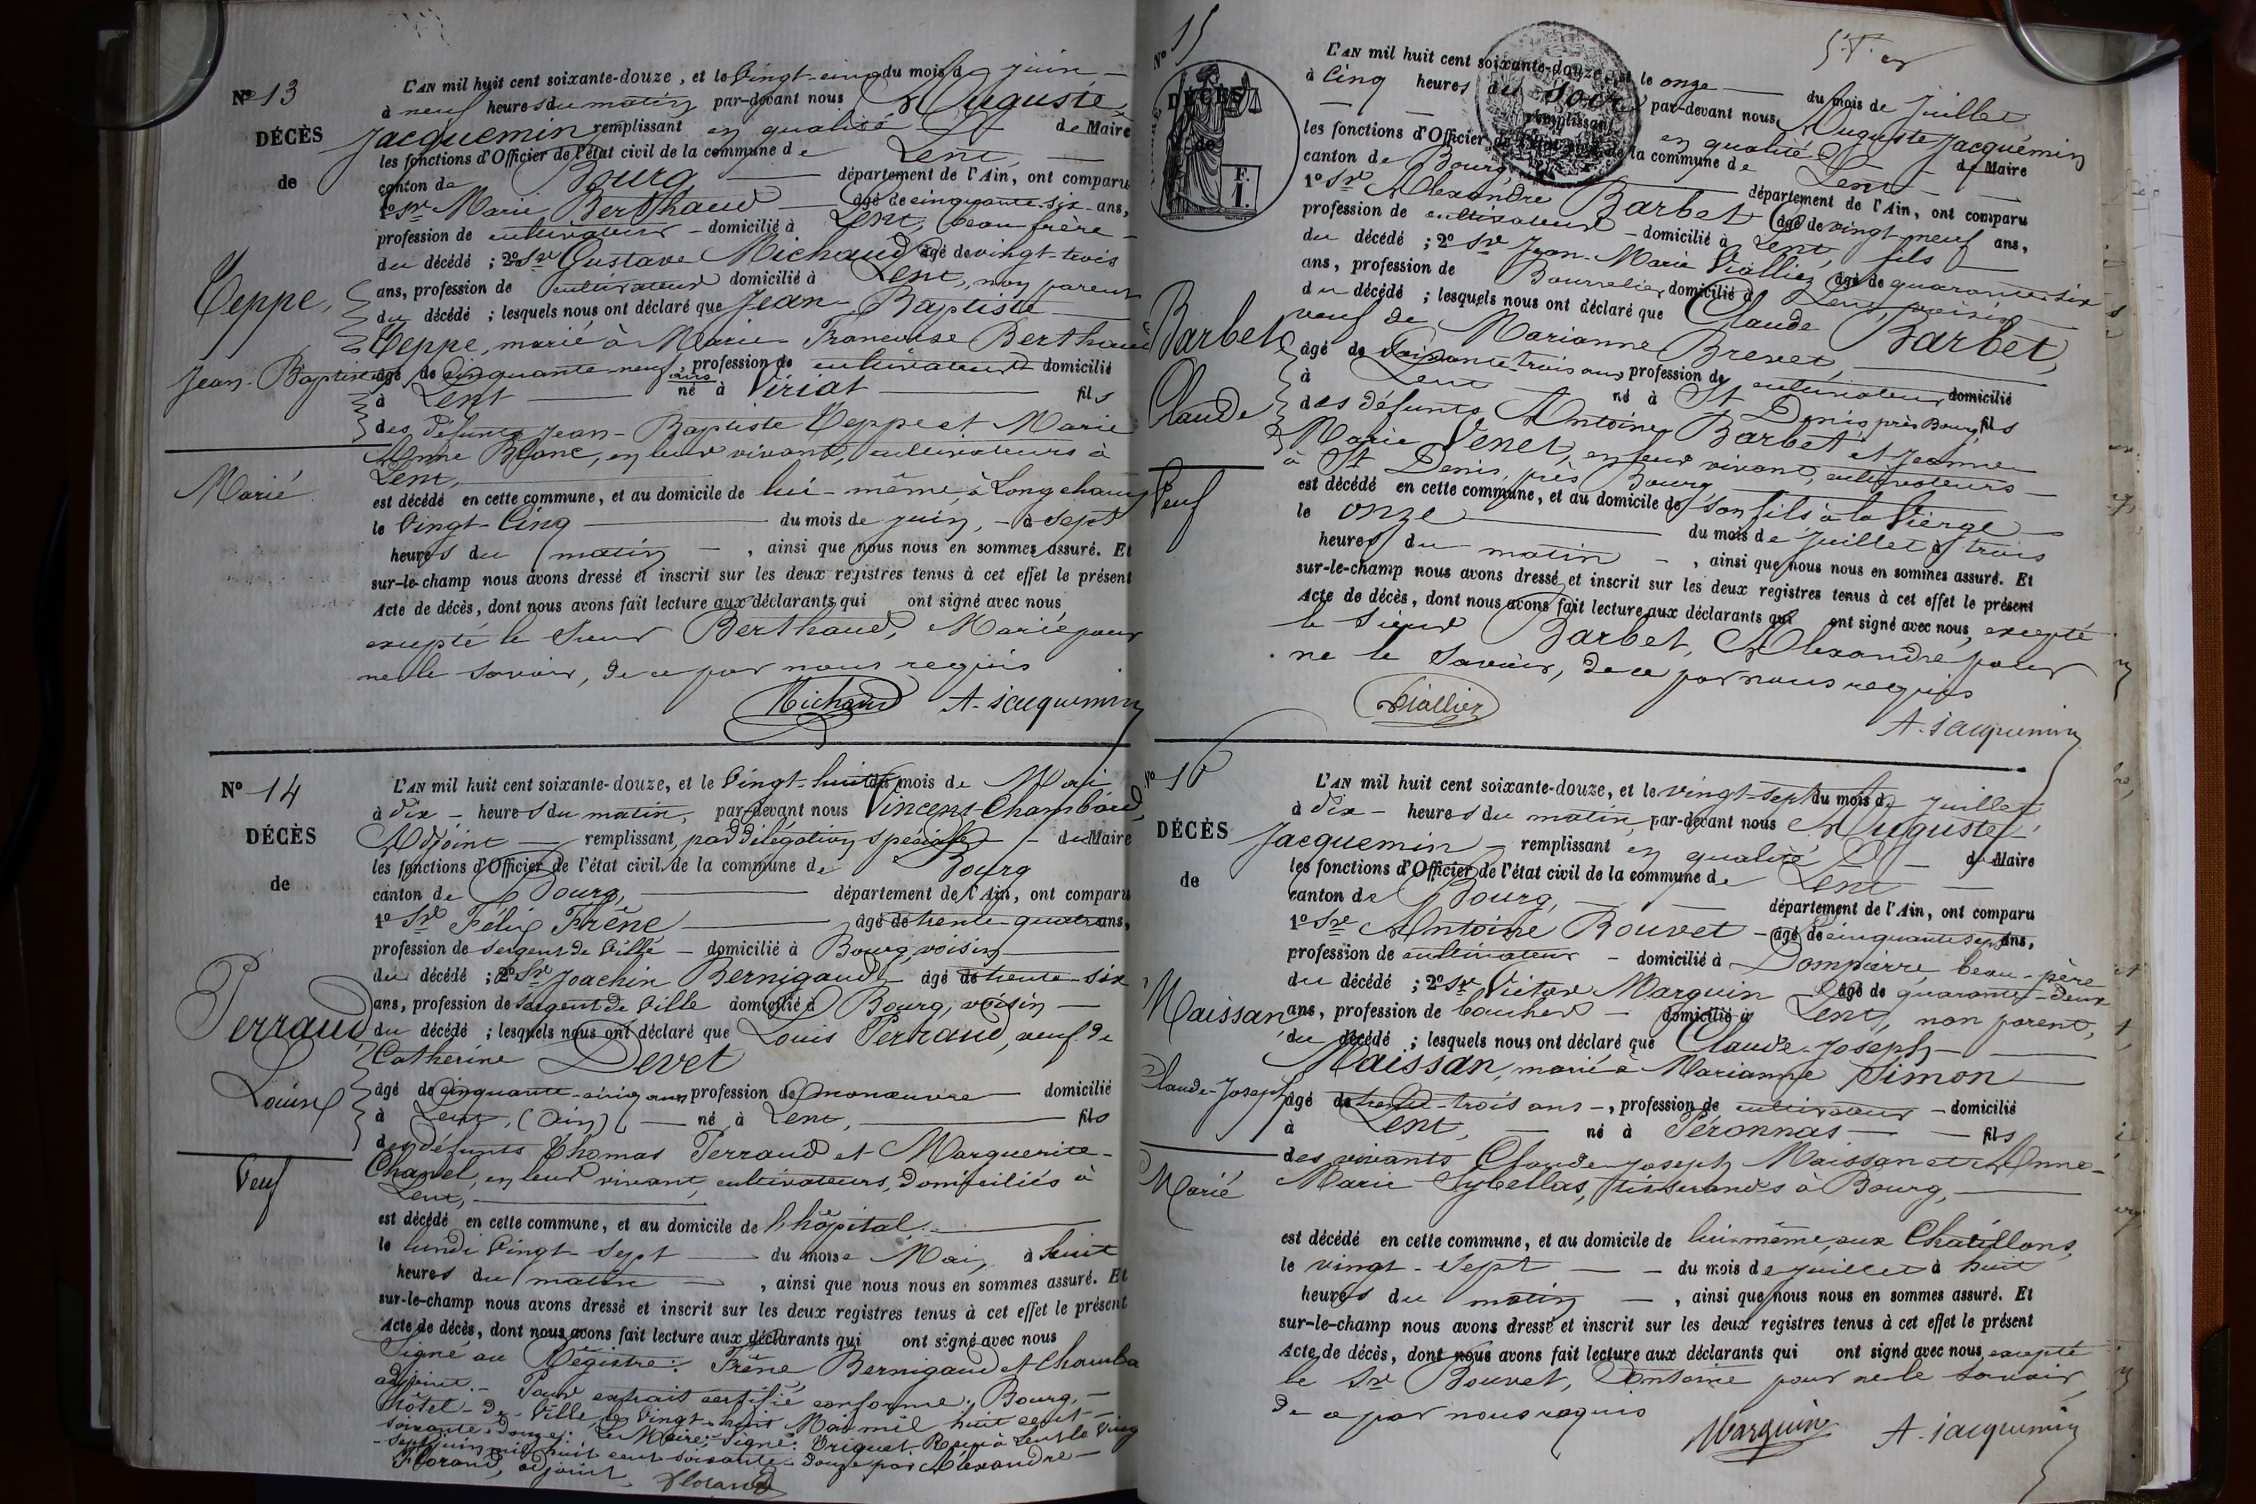 N° 13
DÉCÈS
de
Teppe,
Jean-Baptiste
Marié
L'AN mil huit cent soixante-douze, et le Vingt-cinq du mois de juin
à neuf heures du matin par-devant nous Auguste
Jacquemin remplissant en qualité de Maire
les fonctions d'Officier de l'état civil de la commune de Lent,
canton de Bourg département de l'Ain, ont comparu
1° Sr Marie Berthaud âgé de cinquante-six ans,
profession de cultivateur domicilié à Lent, beau-frère
du décédé ; 2° Sr Gustave Michaud âgé de vingt-trois
ans, profession de cultivateur domicilié à Lent, non parent
du décédé ; lesquels nous ont déclaré que Jean-Baptiste
Teppe, marié à Marie Francoise Berthaud
âgé de cinquante-neuf ans profession de cultivateur domicilié
à Lent né à Viriat fils
des défunts Jean-Baptiste Teppe et Marie
Anne Blanc, en leur vivant, cultivateurs à
Lent,
est décédé en cette commune, et au domicile de lui-même, à Longchamp
le Vingt-Cinq du mois de juin, à sept
heures du matin, ainsi que nous nous en sommes assuré. Et
sur-le-champ nous avons dressé et inscrit sur les deux registres tenus à cet effet le présent
Acte de décès, dont nous avons fait lecture aux déclarants qui ont signé avec nous
excepté le Sieur Berthaud, Marie pour
ne le savoir, de ce par nous requis
Michaud A. Jacquemin
N° 14
DÉCÈS
de
Perraud
Louis
Veuf
L'AN mil huit cent soixante-douze, et le Vingt-huit du mois de Mai
à dix heures du matin, par-devant nous Vincent Chambaud,
Adjoint remplissant par délégation spéciale du Maire
les fonctions d'Officier de l'état civil de la commune de Bourg
canton de Bourg, département de l'Ain, ont comparu
1° Sr Félix Frêne âgé de trente-quatre ans,
profession de sergent de Ville domicilié à Bourg voisin
du décédé ; 2° Sr Joachin Bernigaud âgé de trente-six
ans, profession de sergent de Ville domicilié à Bourg, voisin
du décédé ; lesquels nous ont déclaré que Louis Perraud, veuf de
Catherine Devet
âgé de cinquante-cinq ans profession de manœuvre domicilié
à Lent, (Ain) né à Lent, fils
des défunts Thomas Perraud et Marguerite
Chanel, en leur vivant, cultivateurs, domiciliés à
Lent,
est décédé en cette commune, et au domicile de l'hôpital
le lundi Vingt-sept du mois de Mai, à huit
heures du matin, ainsi que nous nous en sommes assuré. Et
sur-le-champ nous avons dressé et inscrit sur les deux registres tenus à cet effet le présent
Acte de décès, dont nous avons fait lecture aux déclarants qui ont signé avec nous
Signé au Régistre: Frêne, Bernigaud et Chamba
adjoint. Pour extrait certifié conforme. Bourg,
hôtel-de-Ville le Vingt-huit Mai mil huit cent
soixante-douze. Le Maire; signé: Reçu à Lent le Vingt
-sept juin mil huit cent soixante-douze par Alexandre
Florand, adjoint, Florand
N° 15
DÉCÈS
de
F.
1.
Barbet
Claude
Veuf
L'AN mil huit cent soixante-douze, et le onze du mois de Juillet
à cinq heures du soir par-devant nous, Auguste Jacquemin
remplissant en qualité de Maire
les fonctions d'Officier de l'état civil de la commune de Lent
canton de Bourg, département de l'Ain, ont comparu
1° Sr Alexandre Barbet âgé de vingt-neuf ans,
profession de cultivateur domicilié à Lent, fils
du décédé ; 2° Sr Jean-Marie Viallier âgé de quarante-six
ans, profession de Bourrelier domicilié à Lent, voisin
du décédé ; lesquels nous ont déclaré que Claude Barbet,
veuf de Marianne Brevet,
âgé de soixante trois ans, profession de cultivateur domicilié
à Lent né à St Denis près Bourg, fils
des défunts Antoine Barbet et Jeanne
Marie Venet, en leur vivant, cultivateurs
à St Denis, près Bourg
est décédé en cette commune, et au domicile de son fils à la Vierge
le onze du mois de juillet à trois
heures du matin, ainsi que nous nous en sommes assuré. Et
sur-le-champ nous avons dressé et inscrit sur les deux registres tenus à cet effet le présent
Acte de décès, dont nous avons fait lecture aux déclarants qui ont signé avec nous, excepté
le Sieur Barbet, Alexandre pour
ne le savoir, de ce par nous requis
Viallier
A. Jacquemin
N° 16
DÉCÈS
de
Maissan,
Claude-Joseph
Marié
L'AN mil huit cent soixante-douze, et le vingt-sept du mois de Juillet
à dix heures du matin, par-devant nous Auguste
Jacquemin remplissant en qualité de Maire
les fonctions d'Officier de l'état civil de la commune de Lent
canton de Bourg, département de l'Ain, ont comparu
1° Sr Antoine Bouvet âgé de cinquante sept ans,
profession de cultivateur domicilié à Dompierre, beau-père
du décédé ; 2° Sr Victor Marguin âgé de quarante-deux
ans, profession de boucher domicilié à Lent, non parent,
du décédé ; lesquels nous ont déclaré que Claude-Joseph
Maissan, marié à Marianne Simon
âgé de trente-trois ans, profession de cultivateur domicilié
à Lent, né à Péronnas fils
des vivants Claude-Joseph Maissan et Anne-
Marie Sybellas, tisserands à Bourg,
est décédé en cette commune, et au domicile de lui-même, aux Chatillons,
le vingt-sept du mois de juillet à huit
heures du matin, ainsi que nous nous en sommes assuré. Et
sur-le-champ nous avons dressé et inscrit sur les deux registres tenus à cet effet le présent
Acte de décès, dont nous avons fait lecture aux déclarants qui ont signé avec nous, excepté
le Sr Bouvet, Antoine pour ne le savoir
de ce par nous requis
Marguin A. Jacquemin